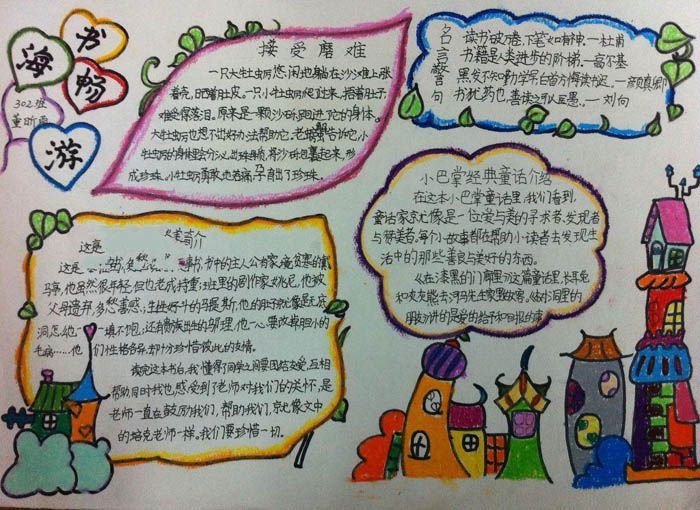 书
海 畅
游
302班
接受磨难
一只大牡蛎悠闲地躺在沙滩上张
着壳,晒着肚皮。一只小牡蛎爬过来,捂着肚子
难受得落泪。原来是一颗沙砾跑进了它的身体。
大牡蛎也想不出好办法帮助它。老螃蟹告诉它,小
牡蛎的身体里会分泌出珠母质,将沙砾包裹起来,形
成珍珠。小牡蛎勇敢地忍着痛,孕育出了珍珠。
名言警句
读书破万卷,下笔如有神。—杜甫
书籍是人类进步的阶梯。—高尔基
黑发不知勤学早,白首方悔读书迟。—颜真卿
书犹药也,善读之可以医愚。—刘向
小巴掌经典童话介绍
在这本小巴掌童话里,我们看到,
童话家就像是一位爱与美的寻求者、发现者
与解美者。每个小故事都在帮助小读者去发现生
活中的那些善良与美好的东西。
《在漆黑的门廊里》这篇童话里,长耳兔
和友友能去河马先生家里做客,《树洞里的
朋友》讲的是爱的给予和回报的事
这是
这是 书,书中的主人公有家境贫寒的
马,他虽然很年轻,但也老成持重;班里的剧作家妙尼,他被
父母遗弃,多愁善感;生性好斗的马提斯,他的肚子就像是无底
洞,总也填不饱;还有贵族出生的邬理,他一心要改掉胆小的
毛病……他们性格各异,却十分珍惜彼此的友情。
读完这本书后,我懂得了同学之间要团结友爱,互相
帮助,同时我也感受到了老师对我们的关怀,是
老师一直在鼓励我们,帮助我们,就像文中
的培克老师一样。我们要珍惜一切。